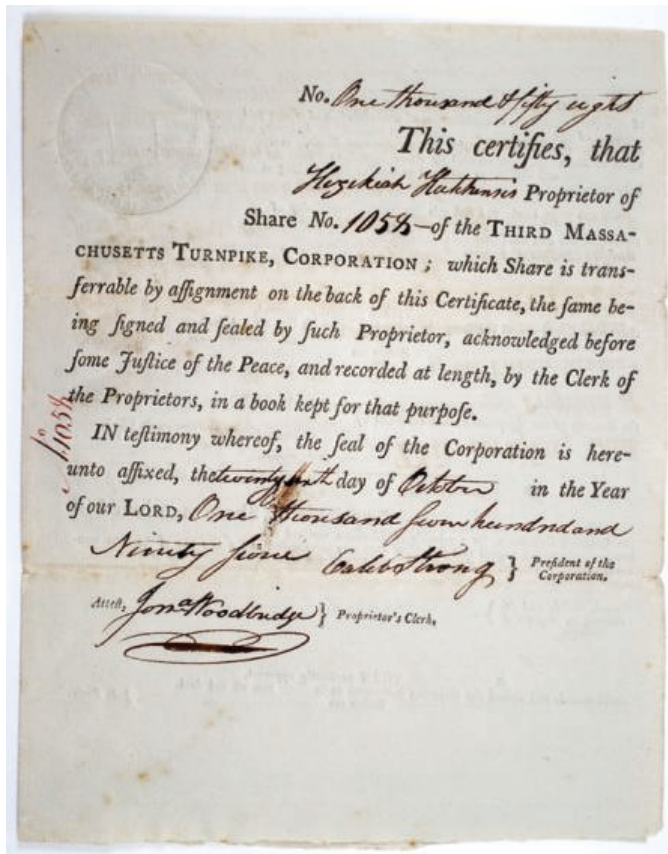 No. One thousand & fifty eight
This certifies, that
Hezekiah Hutchinsis Proprietor of
Share No. 1058 - of the THIRD MASSA-
CHUSETTS TURNPIKE, CORPORATION ; which Share is trans-
ferrable by aſſignment on the back of this Certificate, the ſame be-
ing ſigned and ſealed by ſuch Proprietor, acknowledged before
ſome Juſtice of the Peace, and recorded at length, by the Clerk of
the Proprietors, in a book kept for that purpoſe.
IN teſtimony whereof, the ſeal of the Corporation is here-
unto affixed, the day of October in the Year
of our LORD, One thousand seven hundred and
Ninety seven Caleb Strong } Preſident of the
Corporation.
Atteſt, Jonª Woodbridge } Proprietor's Clerk.
No 1058